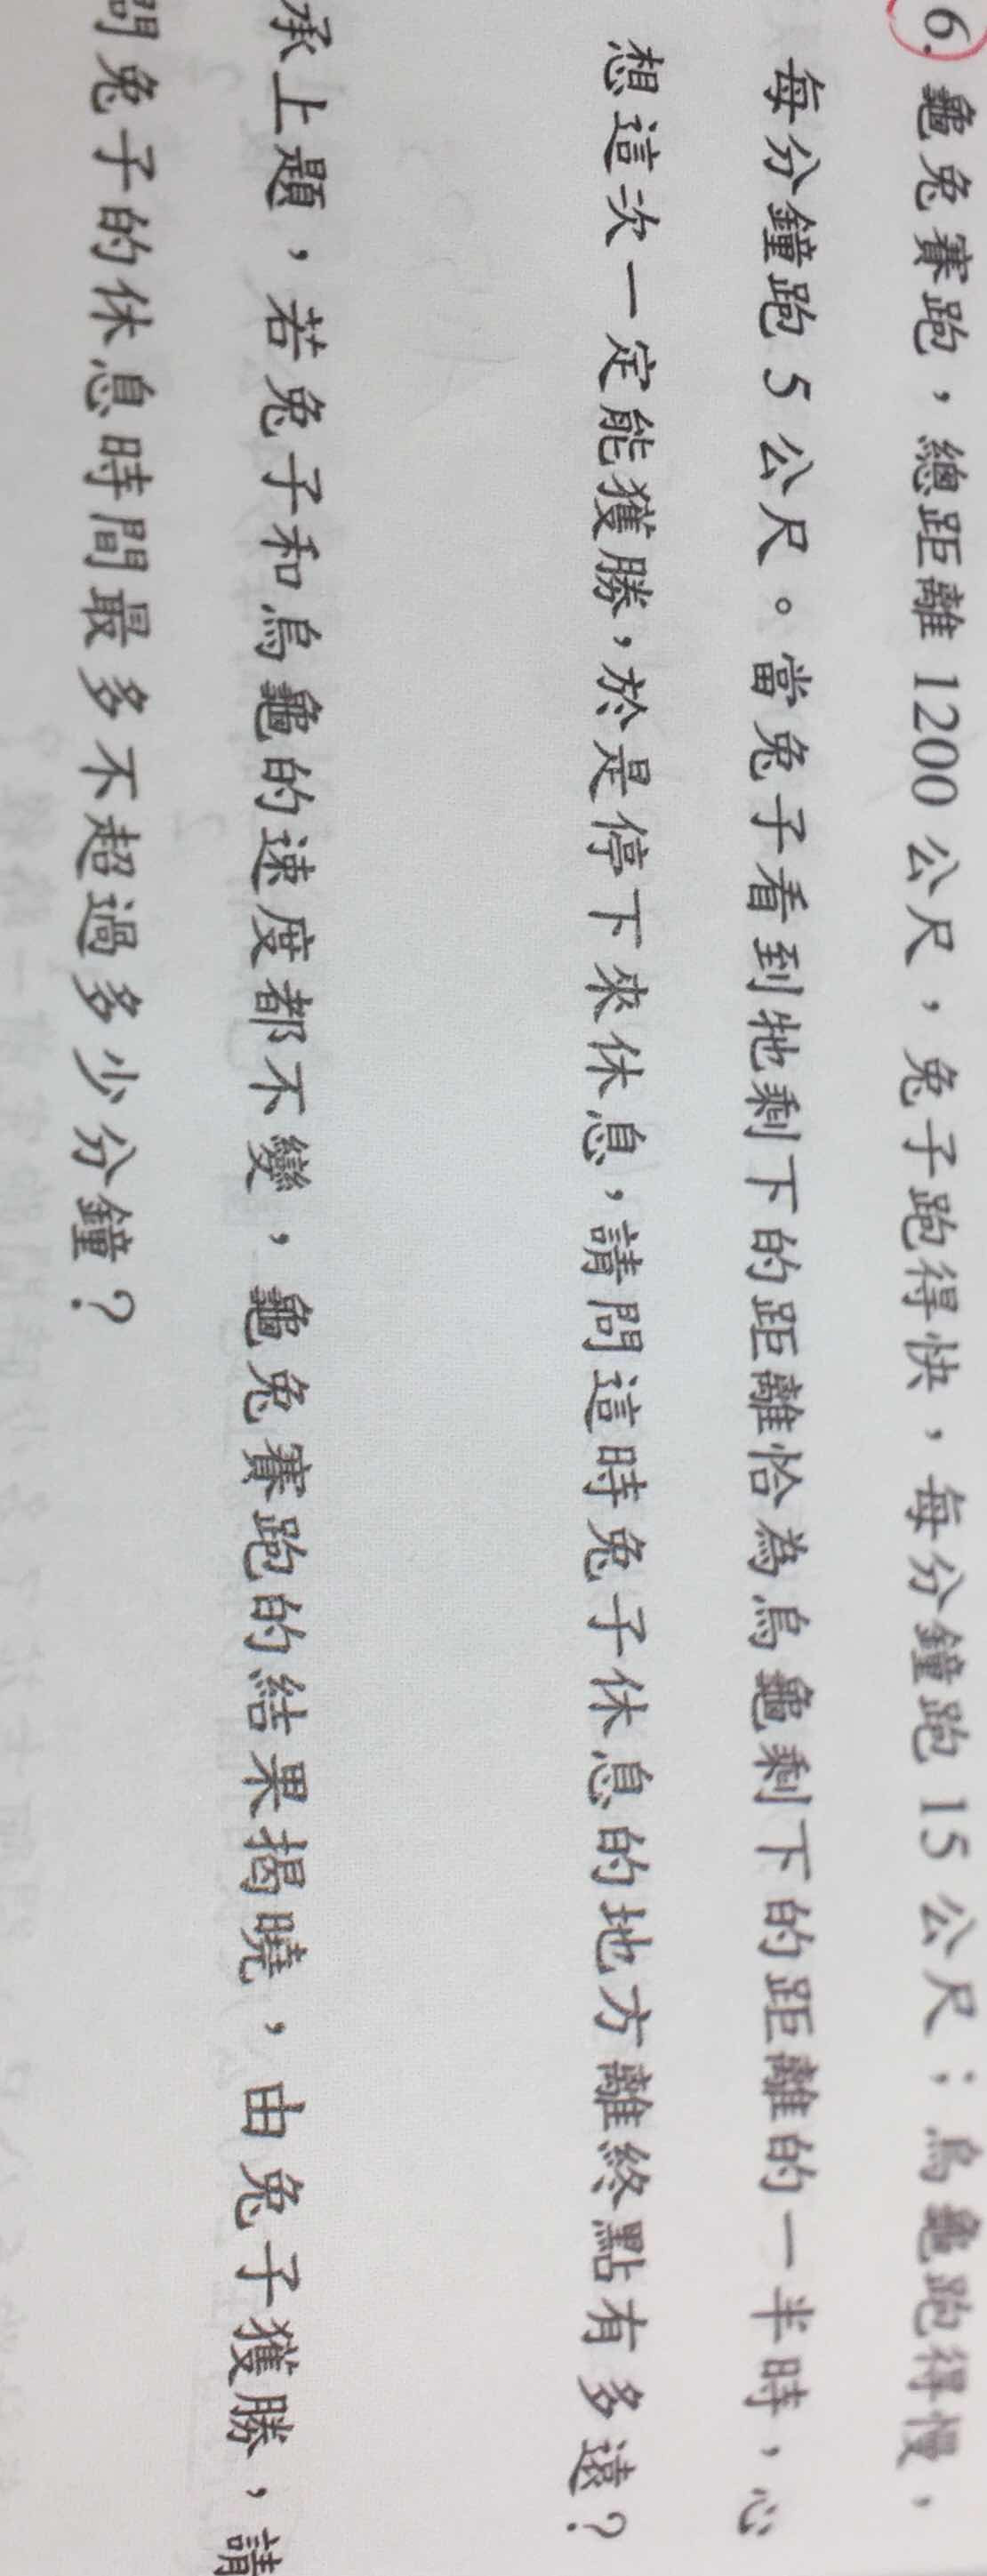 6. 龜兔賽跑，總距離 1200 公尺，兔子跑得快，每分鐘跑 15 公尺；烏龜跑得慢，
每分鐘跑 5 公尺。當兔子看到牠剩下的距離恰為烏龜剩下的距離的一半時，心
想這次一定能獲勝，於是停下來休息，請問這時兔子休息的地方離終點有多遠？
承上題，若兔子和烏龜的速度都不變，龜兔賽跑的結果揭曉，由兔子獲勝，請
問兔子的休息時間最多不超過多少分鐘？